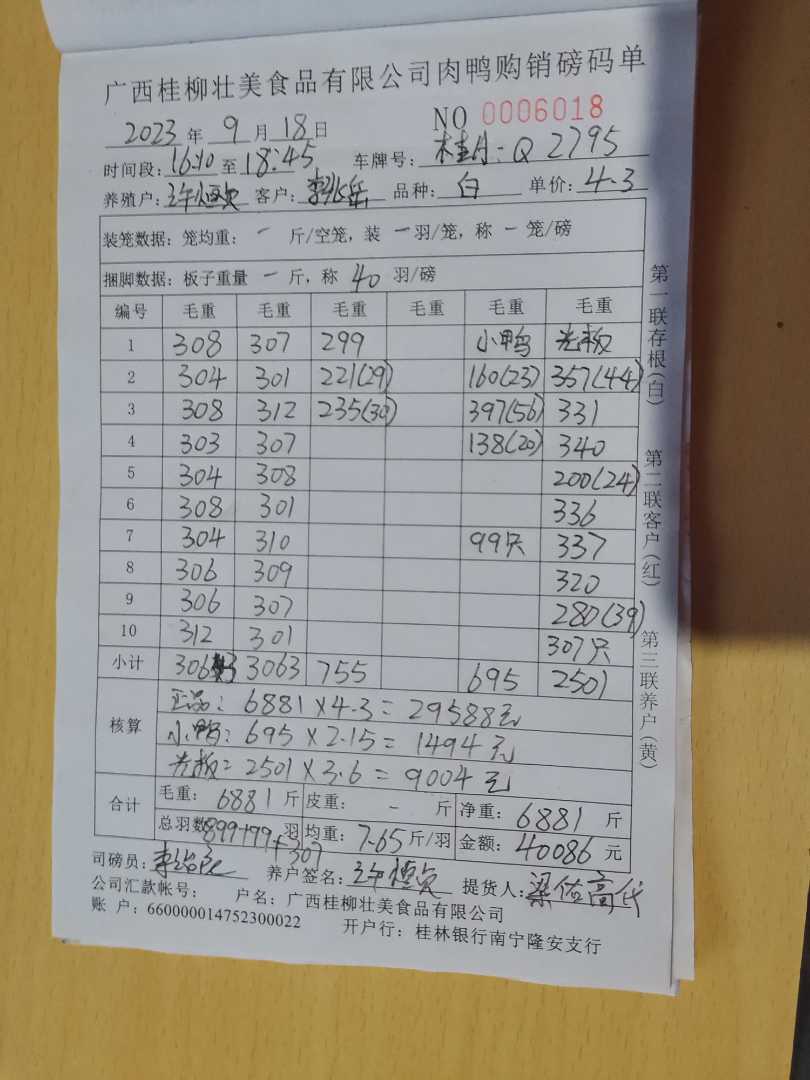 广西桂柳壮美食品有限公司肉鸭购销磅码单
NO 0006018
2023 年 9 月 18 日
时间段: 16:10 至 18:45 车牌号: 桂A·Q2795
养殖户: 客户: 品种: 白 单价: 4.3
装笼数据: 笼均重: - 斤/空笼, 装 - 羽/笼, 称 - 笼/磅
捆脚数据: 板子重量 - 斤, 称 40 羽/磅
编号 毛重 毛重 毛重 毛重 毛重 毛重
1 308 307 299 小鸭 光板
2 304 301 221(29) 160(23) 357(44)
3 308 312 235(30) 397(56) 331
4 303 307 138(20) 340
5 304 308 200(24)
6 308 301 336
7 304 310 99只 337
8 306 309 320
9 306 307 280(39)
10 312 301 307只
小计 3063 3063 755 695 2501
核算
正品: 6881×4.3=29588元
小鸭: 695×2.15=1494元
光板=2501×3.6=9004元
合计 毛重: 6881 斤 皮重: - 斤 净重: 6881 斤
总羽数 899+99+307 羽 均重: 7.65 斤/羽 金额: 40086 元
司磅员: 养户签名: 提货人:
公司汇款帐号: 户名: 广西桂柳壮美食品有限公司
账 户: 660000014752300022 开户行: 桂林银行南宁隆安支行
第一联存根(白)
第二联客户(红)
第三联养户(黄)